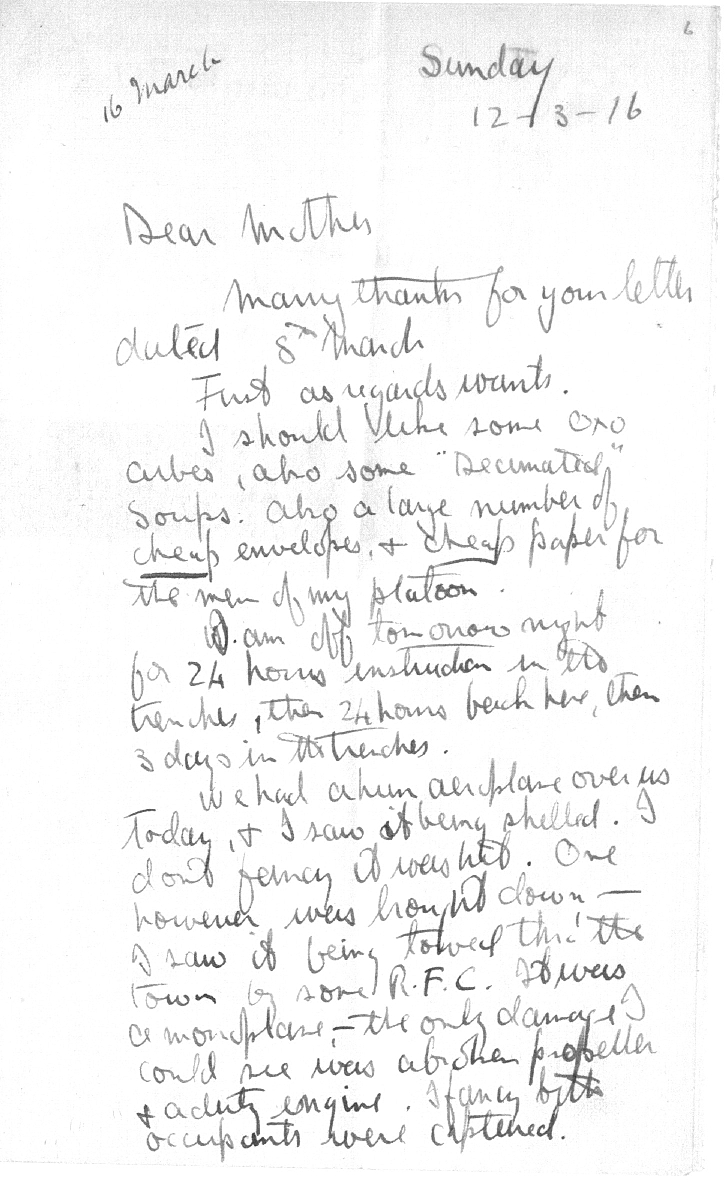 6
16 March
Sunday
12-3-16
Dear Mother
Many thanks for your letter
dated 8th March
First as regards wants.
I should like some OXO
cubes, also some "Desiccated"
Soups. Also a large number of
cheap envelopes, & cheap paper for
the men of my platoon.
I am off tomorrow night
for 24 hours instruction in the
trenches, then 24 hours back here, then
3 days in the trenches.
We had a hun aeroplane over us
today, & I saw it being shelled. I
don't fancy it was hit. One
however was brought down —
I saw it being towed thro' the
town by some R.F.C. It was
a monoplane, – the only damage I
could see was a broken propeller
& a dirty engine. I fancy both
occupants were captured.